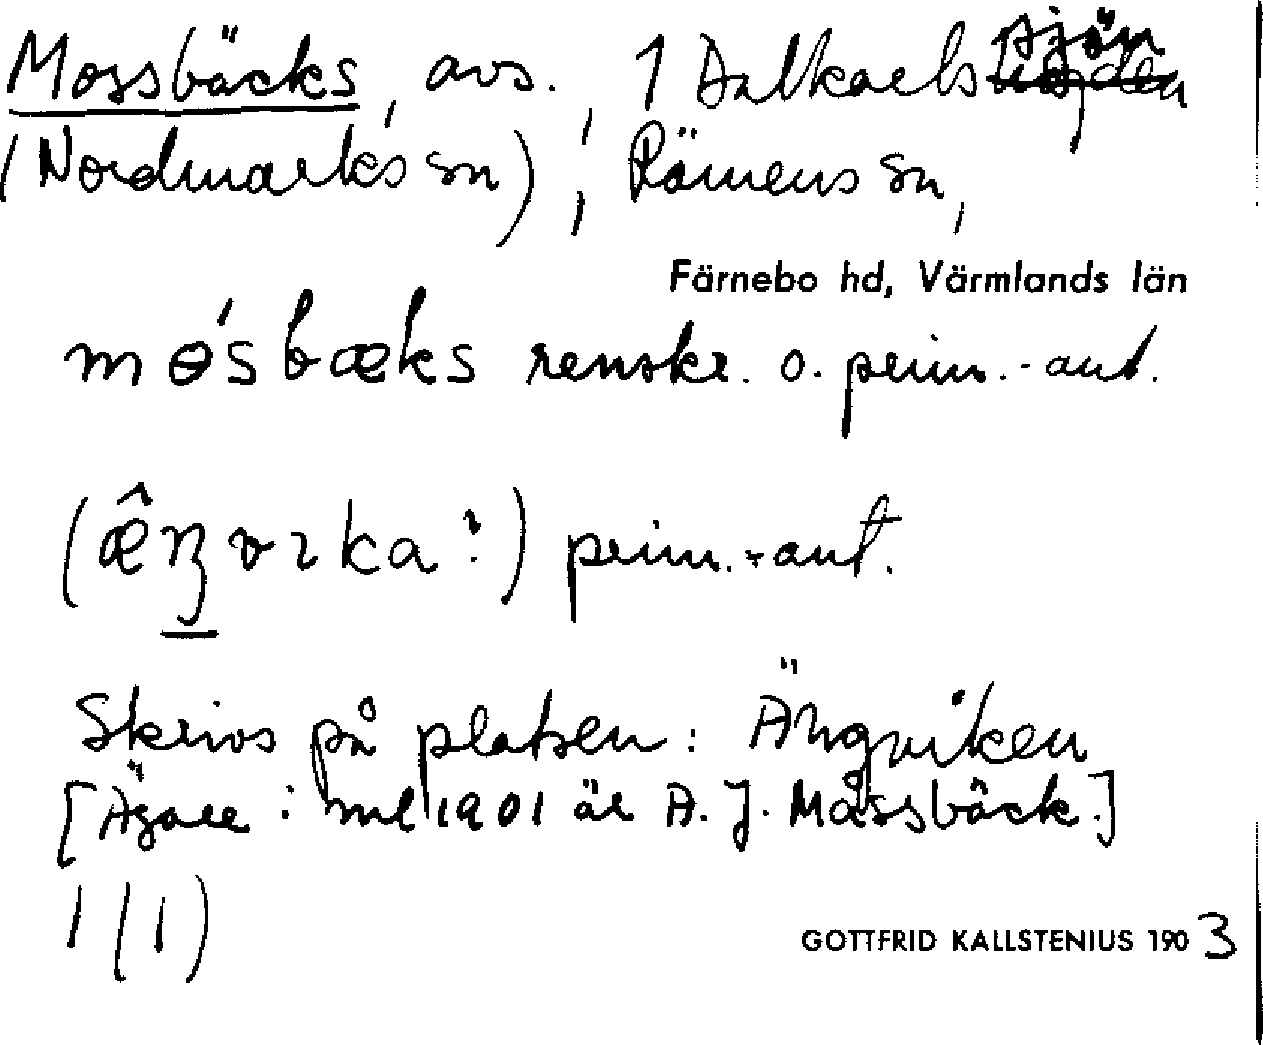 Mossbäcks, avs., 1 Dalkarlssjön
(Nordmarks sn), Rämens sn,
Färnebo hd, Värmlands län
mɵ́sbæks renskr. o. prim.-ant.
prim.-ant.
Skrivs på platsen: Ängviken
[Ägare i ml 1901 är A. J. Måssbäck.]
1 (1)
GOTTFRID KALLSTENIUS 1903